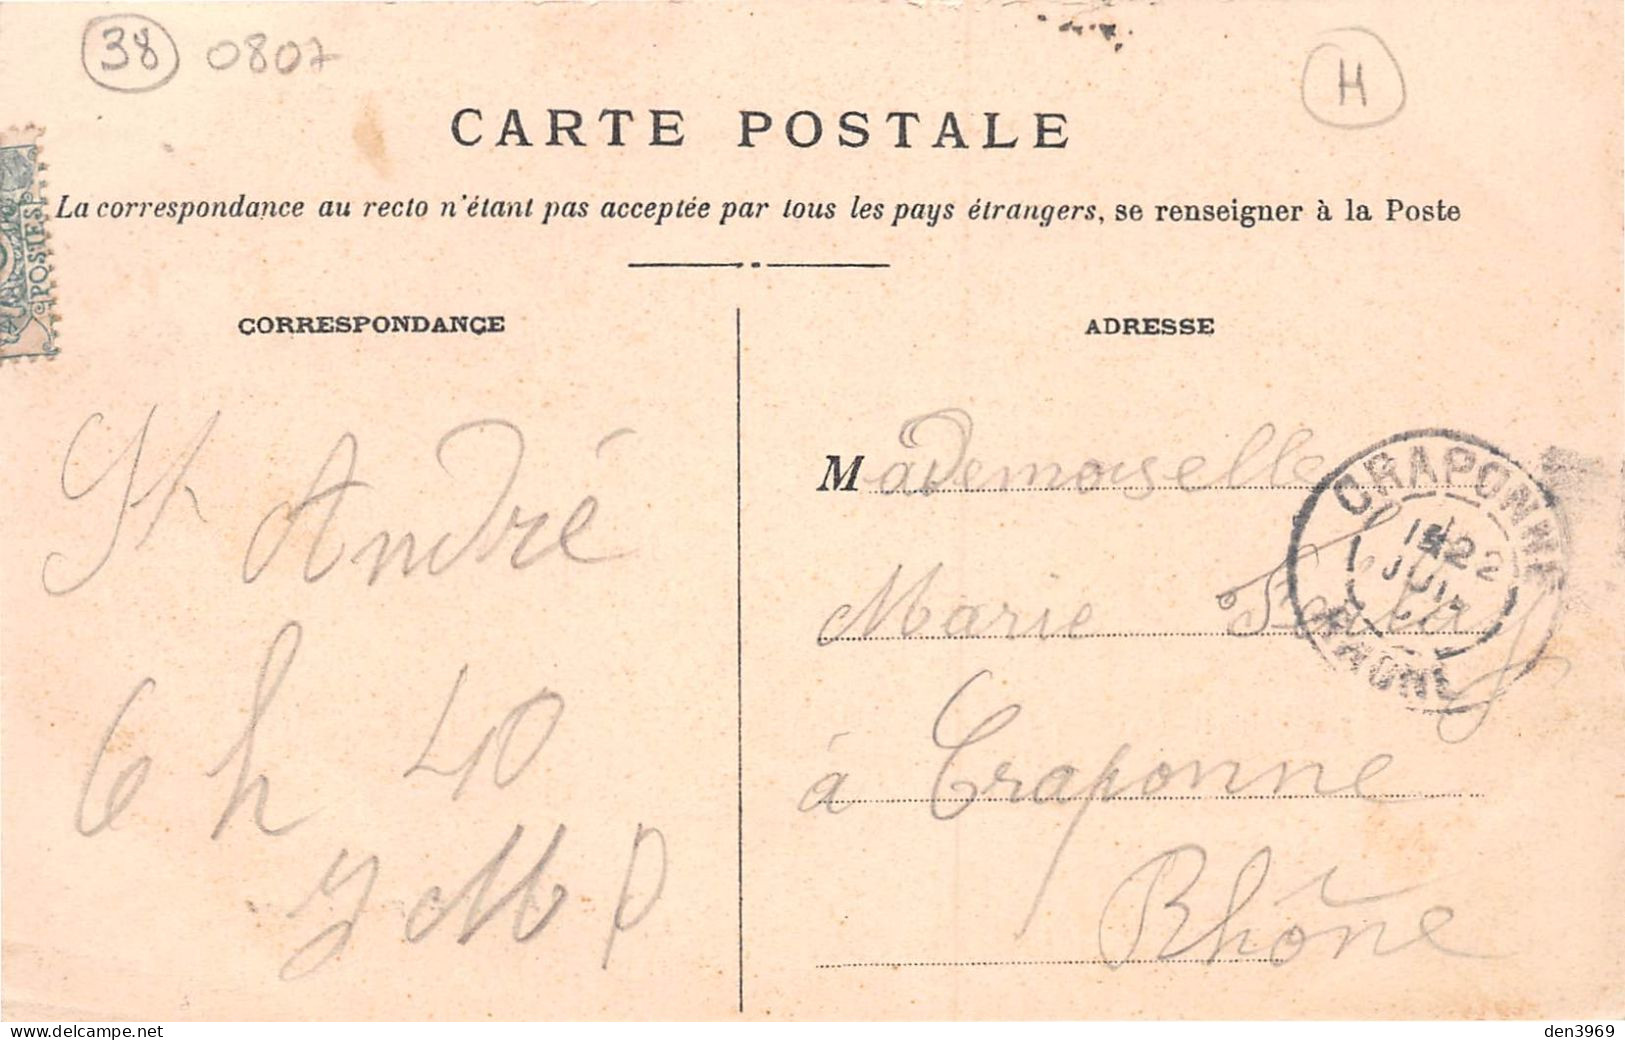 38 0807
H
CARTE POSTALE
La correspondance au recto n'étant pas acceptée par tous les pays étrangers, se renseigner à la Poste
POSTES
CORRESPONDANCE
ADRESSE
St André
6 h 40
JMP
Mademoiselle
Marie
à Craponne
Rhône
CRAPONNE
RHONE
http://www.delcampe.net
den3969